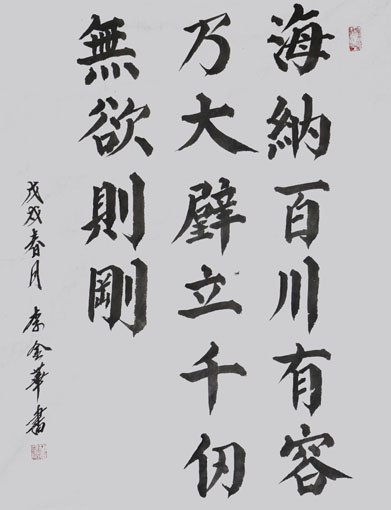 海納百川有容
乃大壁立千仞
無欲則剛
戊戌春月 李金華書